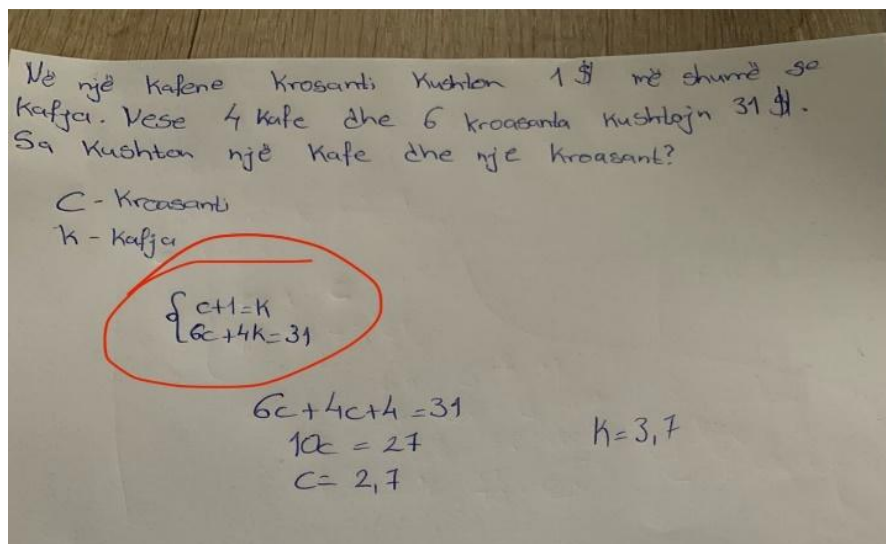 Në një Kafene Krosanti Kushton 1 $ më shumë se
Kafja. Nese 4 Kafe dhe 6 kroasanta Kushtojn 31 $.
Sa Kushton një Kafe dhe nje Kroasant?
C - Kroasanti
K - Kafja
c+1=K
6c+4K=31
6c+4c+4=31
10c = 27
K=3,7
c= 2,7